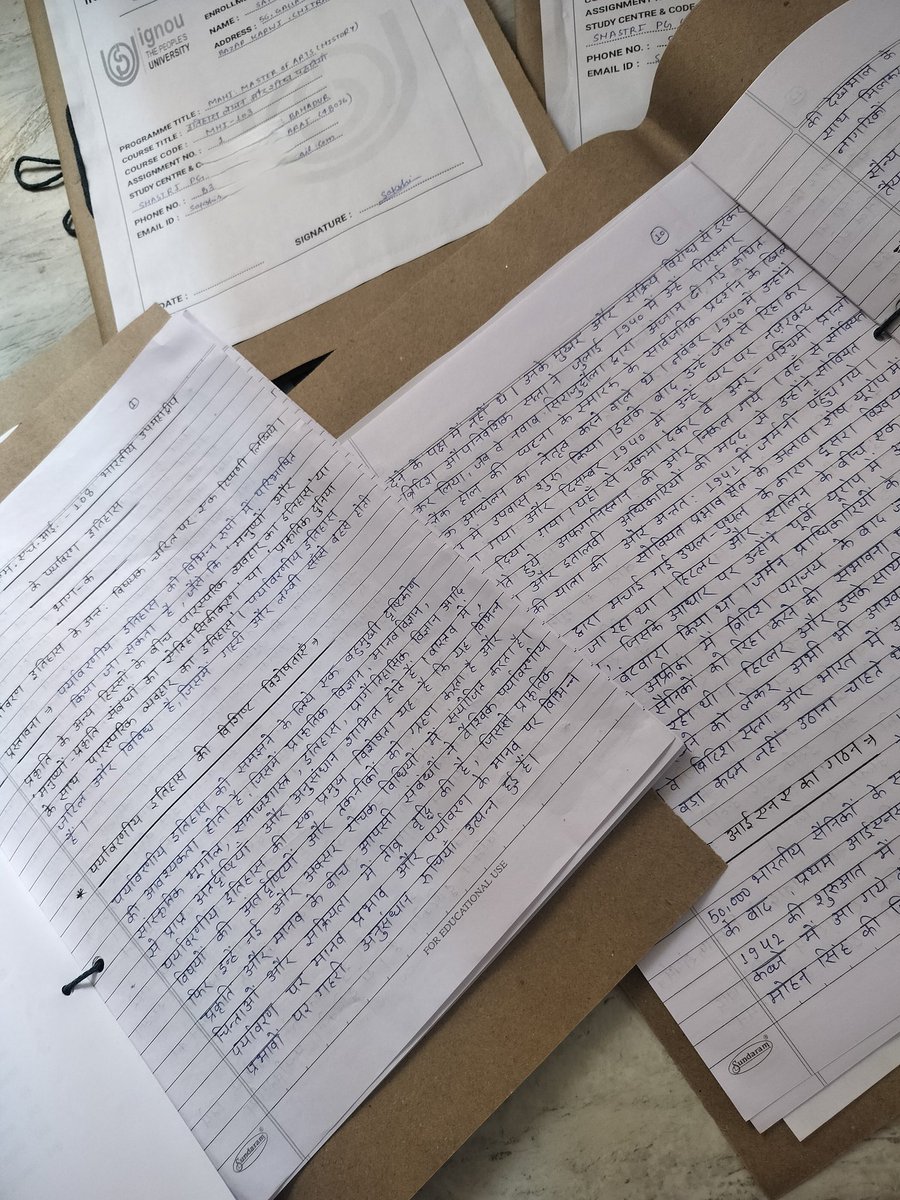 ignou
THE PEOPLE'S
UNIVERSITY
NAME :
ADDRESS :
PROGRAMME TITLE : MAHI. MASTER OF ARTS (HISTORY)
COURSE TITLE :
COURSE CODE : MHI-103
ASSIGNMENT NO. :
STUDY CENTRE & C
SHASTRI PG.
PHONE NO. :
EMAIL ID :
SIGNATURE :
DATE :
STUDY CENTRE & CODE
SHASTRI PG
PHONE NO. :
EMAIL ID :
की देखभाल के
साथ मिलकर
नागरिकों
1
एम. एच. आई. - 108 भारतीय उपमहाद्वीप
के पर्यावरण इतिहास
भाग-क
इतिहास के अन्तः विषयक चरित्र पर एक टिप्पणी लिखिये
प्रस्तावना → पर्यावरणीय इतिहास को विभिन्न रूपों में परिभाषित
किया जा सकता है, जैसे कि 'मनुष्यों और
प्रकृति के अन्य हिस्सों के बीच पारस्परिक व्यवहार का इतिहास' या
'मनुष्यों-प्रकृति संबंधों का ऐतिहासिकीकरण' या 'प्राकृतिक दुनिया
के साथ पारस्परिक व्यवहार का इतिहास'। पर्यावरणीय इतिहास
जटिल और विविध है, जिसमें गहरी और लम्बी
है।
* पर्यावरणीय इतिहास की विशिष्ट विशेषताएँ →
पर्यावरणीय इतिहास को समझने के लिये एक बहुमुखी दृष्टिकोण
की आवश्यकता होती है। जिसमें प्राकृतिक विज्ञान, मानव विज्ञान,
सांस्कृतिक भूगोल, समाजशास्त्र, इतिहास, प्रागैतिहासिक विज्ञान आदि
से प्राप्त अंतर्दृष्टियां और अनुसंधान शामिल होते हैं। वास्तव में,
पर्यावरणीय इतिहास की एक प्रमुख विशेषता यह है कि यह विभिन्न
विषयों की अंतर्दृष्टियों और तकनीकों को ग्रहण करता है और
फिर इन्हें नई और अक्सर रोचक विधियों में संयोजित करता है।
प्रकृति और मानव के बीच आपसी संबंधों ने वैश्विक पर्यावरणीय
चिन्ताओं और सक्रियता में तीव्र वृद्धि की है, जिससे प्राकृतिक
पर्यावरण पर मानव प्रभाव और पर्यावरण के मानव पर विभिन्न
प्रभावों पर गहरी अनुसंधान रुचियां उत्पन्न हुई हैं।
FOR EDUCATIONAL USE
Sundaram
10
देने के पक्ष में नहीं थे। उनके मुखर और सक्रिय विरोध से डरकर
ब्रिटिश औपनिवेशिक सत्ता ने जुलाई 1940 में उन्हें गिरफ्तार
कर लिया, जब वे नवाब सिराजुद्दौला द्वारा अंजाम दी गई कथित
ब्लैक होल की घटना के स्मारक के सार्वजनिक प्रदर्शन के खिलाफ
के आन्दोलन का नेतृत्व करने वाले थे। नवंबर 1940 में उन्होंने
में उपवास शुरू किया। इसके बाद उन्हें जेल से रिहा कर
दिया गया और दिसम्बर 1940 में उन्हें घर पर नजरबन्द
गया। यहाँ से चकमा देकर वे उत्तर पश्चिमी प्रान्तों
हुये अफगानिस्तान की ओर निकल गये। वहाँ से सोवियत
और इतालवी अधिकारियों की मदद से उन्होंने सोवियत
की यात्रा की और अन्ततः 1941 में जर्मनी पहुंच गये।
सोवियत प्रभाव होने के अलावा शेष यूरोप में
द्वारा मचाई गई उथल पुथल के कारण दूसरा विश्वयुद्ध
जा रहा था। हिटलर और स्टालिन के बीच एक
जिसके आधार पर उन्होंने पूर्वी यूरोप में
बंटवारा किया था। जर्मन प्राधिकारियों के
अफ्रीका में ब्रिटिश पराजय के बाद
सैनिकों को रिहा करने की सम्भावना
रही थी। हिटलर और उसके साथी
को लेकर अभी भी
वे ब्रिटिश सत्ता और भारत में
बड़ा कदम नहीं उठाना चाहते थे
आई एन ए का गठन →
50,000 भारतीय सैनिकों के
के बाद, प्रथम आईएनए
1942 की शुरुआत में
कब्जे में आ गये
मोहन सिंह की
Sundaram